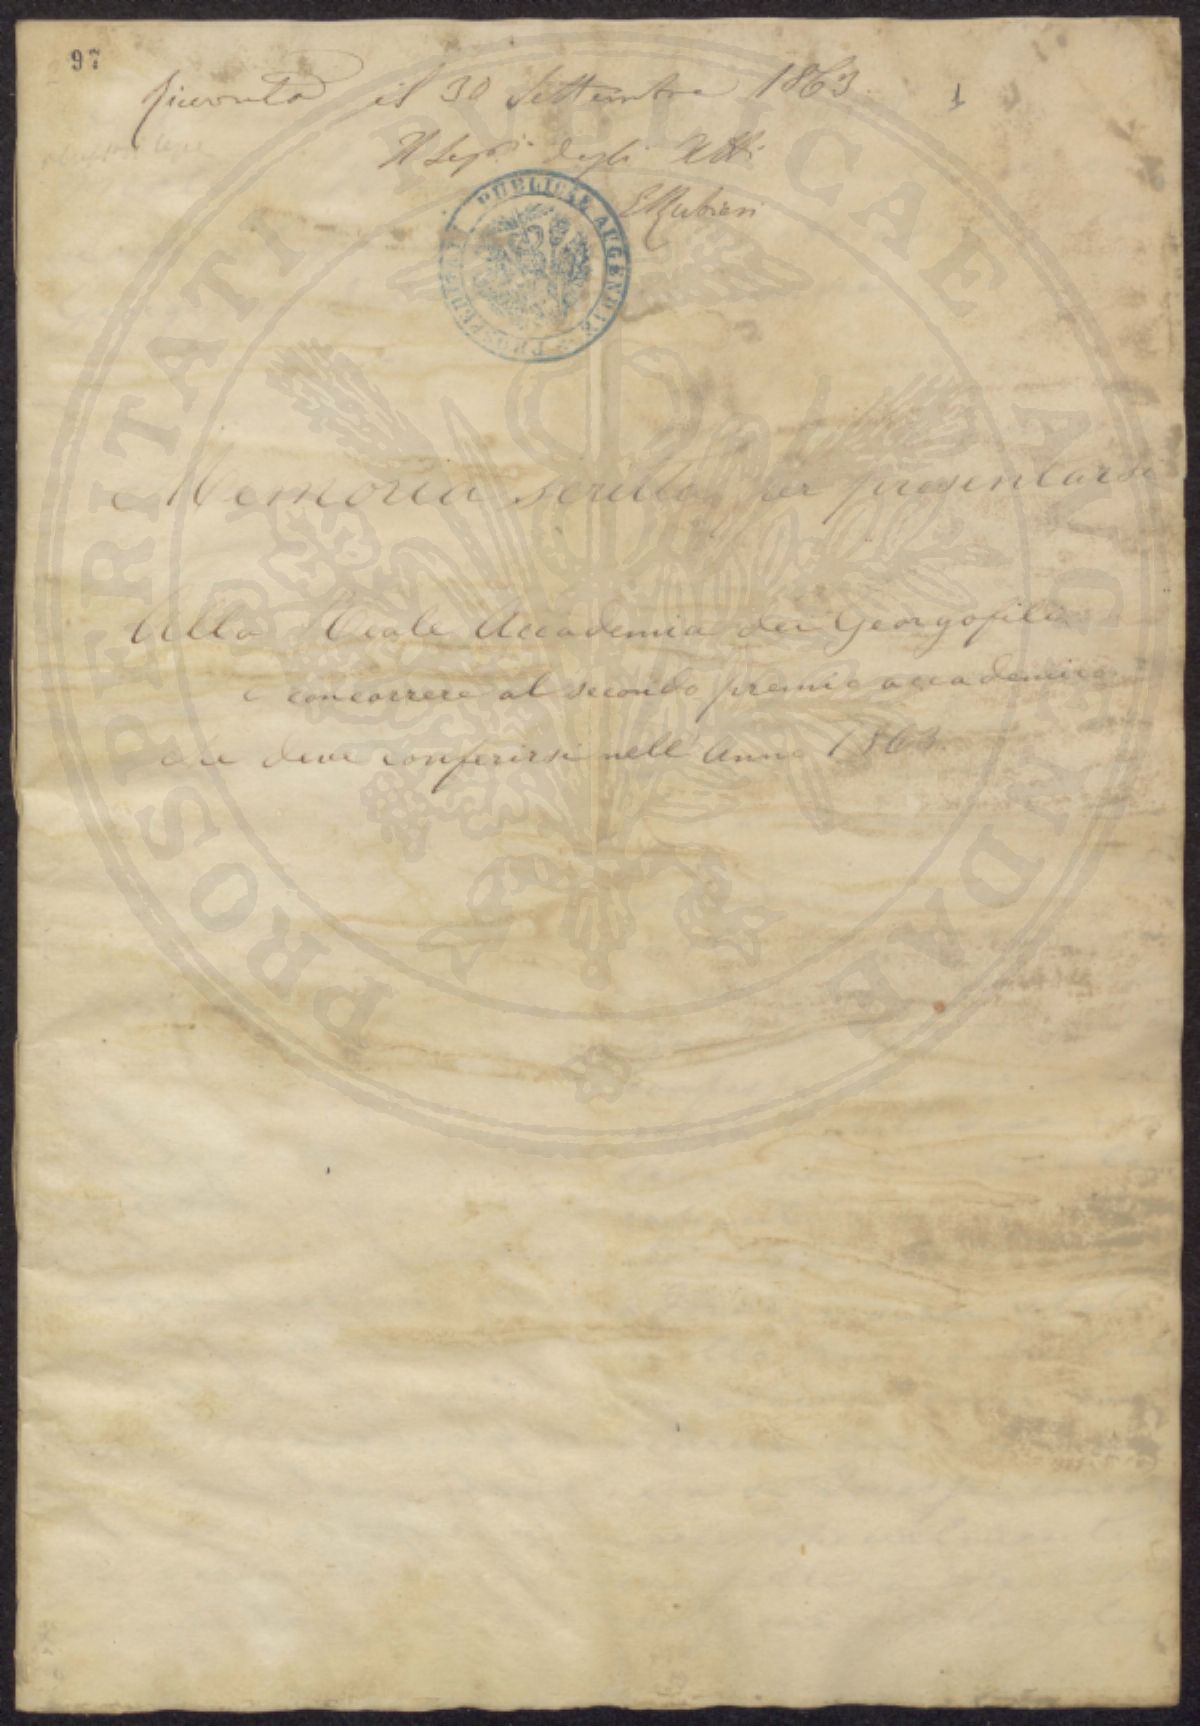 97
Ricevuta il 30 Settembre 1863.
1
Il Segr. degli Atti
E Rubieri
PROSPERITATI PUBLICAE AUGENDAE
Memoria scritta per presentarsi
Alla Reale Accademia dei Georgofili
e concorrere al secondo premio accademico
che deve conferirsi nell' Anno 1863
PROSPERITATI PUBLICAE AUGENDAE